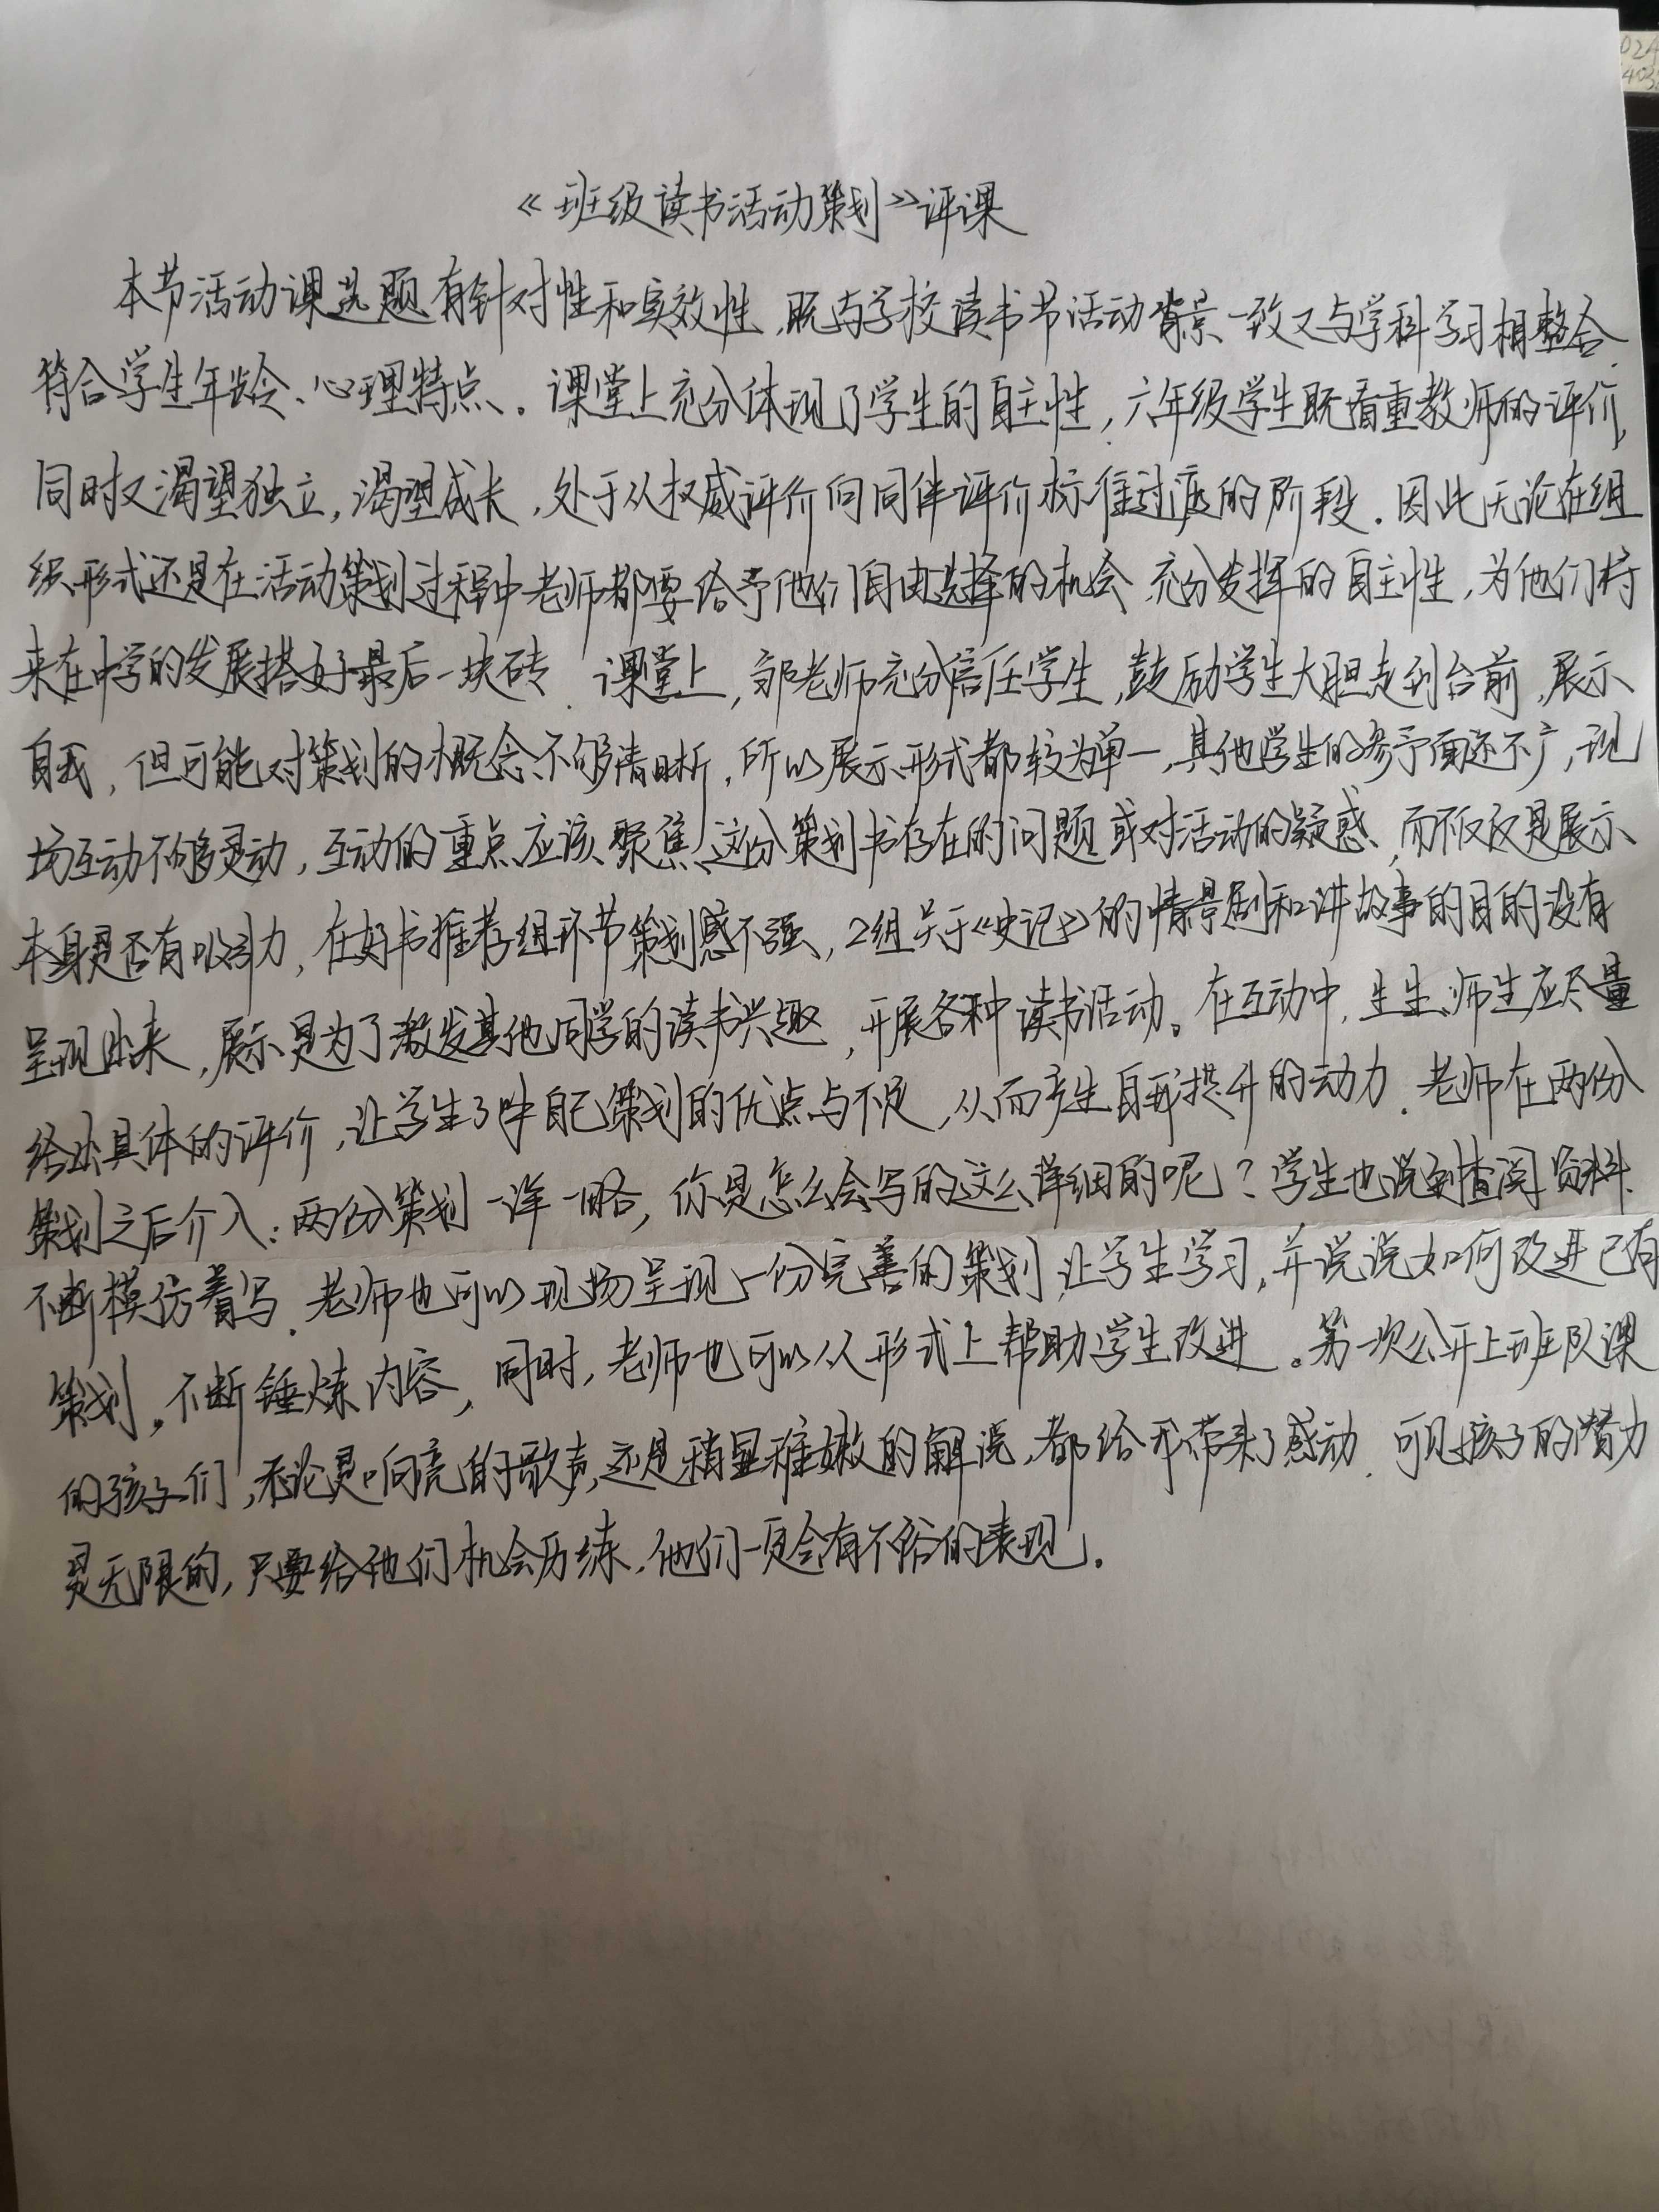 《班级读书活动策划》评课
本节活动课选题有针对性和实效性,既与学校读书节活动背景一致又与学科学习相整合,
符合学生年龄、心理特点。课堂上充分体现了学生的自主性,六年级学生既看重教师的评价,
同时又渴望独立,渴望成长,处于从权威评价向同伴评价标准过渡的阶段.因此无论在组
织形式还是在活动策划过程中老师都要给予他们自由选择的机会,充分发挥的自主性,为他们将
来在中学的发展搭好最后一块砖.课堂上,邹老师充分信任学生,鼓励学生大胆走到台前,展示
自我,但可能对策划的概念不够清晰,所以展示形式都较为单一,其他学生的参予面还不广,现
场互动不够灵动,互动的重点应该聚焦这份策划书存在的问题或对活动的疑惑,而不仅仅是展示
本身是否有吸引力,在好书推荐组环节策划感不强,2组关于《史记》的情景剧和讲故事的目的没有
呈现出来,展示是为了激发其他同学的读书兴趣,开展各种读书活动。在互动中,生生、师生应尽量
给出具体的评价,让学生了解自己策划的优点与不足,从而产生自我提升的动力.老师在两份
策划之后介入:两份策划一详一略,你是怎么会写的这么详细的呢?学生也说到查阅资料、
不断模仿着写.老师也可以现场呈现一份完善的策划,让学生学习,并说说如何改进已有
策划。不断锤炼内容,同时,老师也可以从形式上帮助学生改进。第一次公开上班队课
的孩子们,无论是响亮的歌声,还是稍显稚嫩的解说,都给我带来了感动.可见孩子的潜力
是无限的,只要给他们机会历练,他们一定会有不俗的表现.
024
403